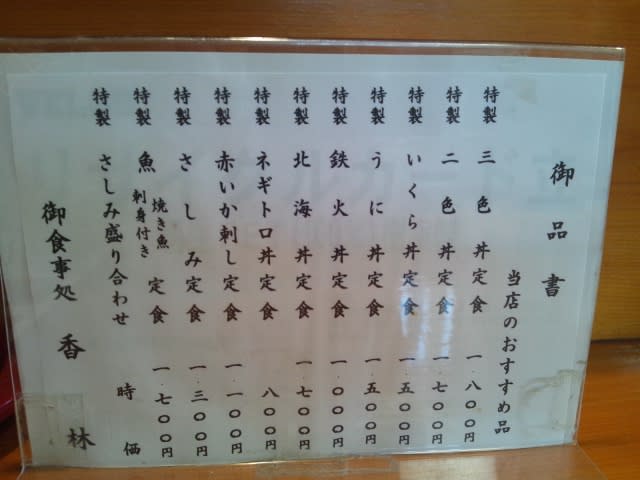 御品書
当店のおすすめ品
特製 三色丼定食 一.八〇〇円
特製 二色丼定食 一.七〇〇円
特製 いくら丼定食 一.五〇〇円
特製 うに丼定食 一.五〇〇円
特製 鉄火丼定食 一.〇〇〇円
特製 北海丼定食 一.七〇〇円
特製 ネギトロ丼定食 八〇〇円
特製 赤いか刺し定食 一.一〇〇円
特製 さしみ定食 一.三〇〇円
特製 魚 焼き魚 刺身付き 定食 一.七〇〇円
特製 さしみ盛り合わせ 時価
御食事処 香林